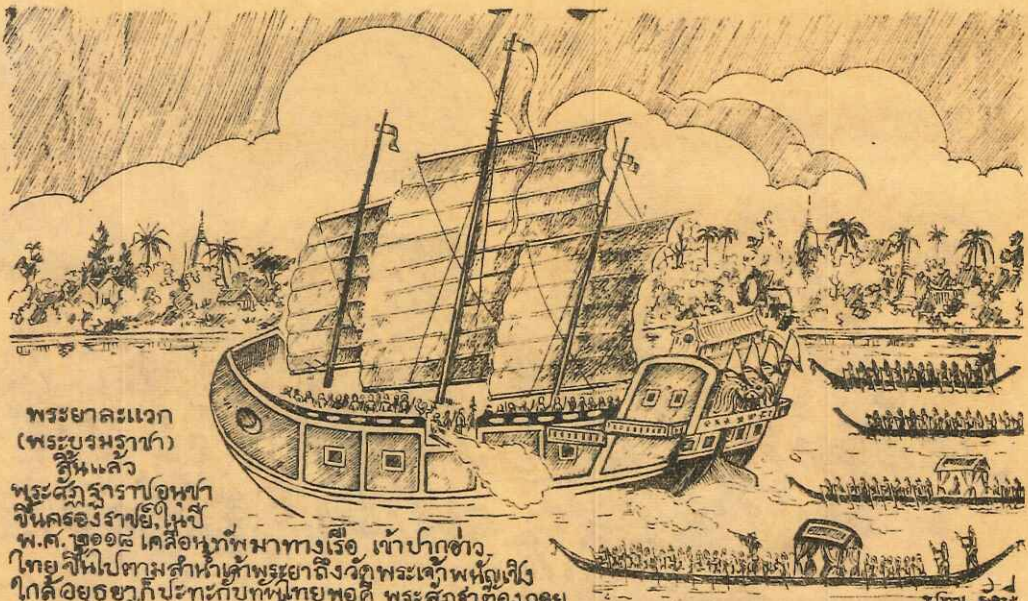 พระยาละแวก
(พระบรมราชา)
สิ้นแล้ว
พระสัฏฐาราชอนุชา
ขึ้นครองราชย์,ในปี
พ.ศ.๒๑๑๘ เคลื่อนทัพมาทางเรือ เข้าปากอ่าว
ไทย ขึ้นไปตามลำน้ำเจ้าพระยาถึงวัดพระเจ้าพนัญเชิง
ใกล้อยุธยาก็ปะทะกับทัพไทยพอดี พระสัฏฐาต้องถอย